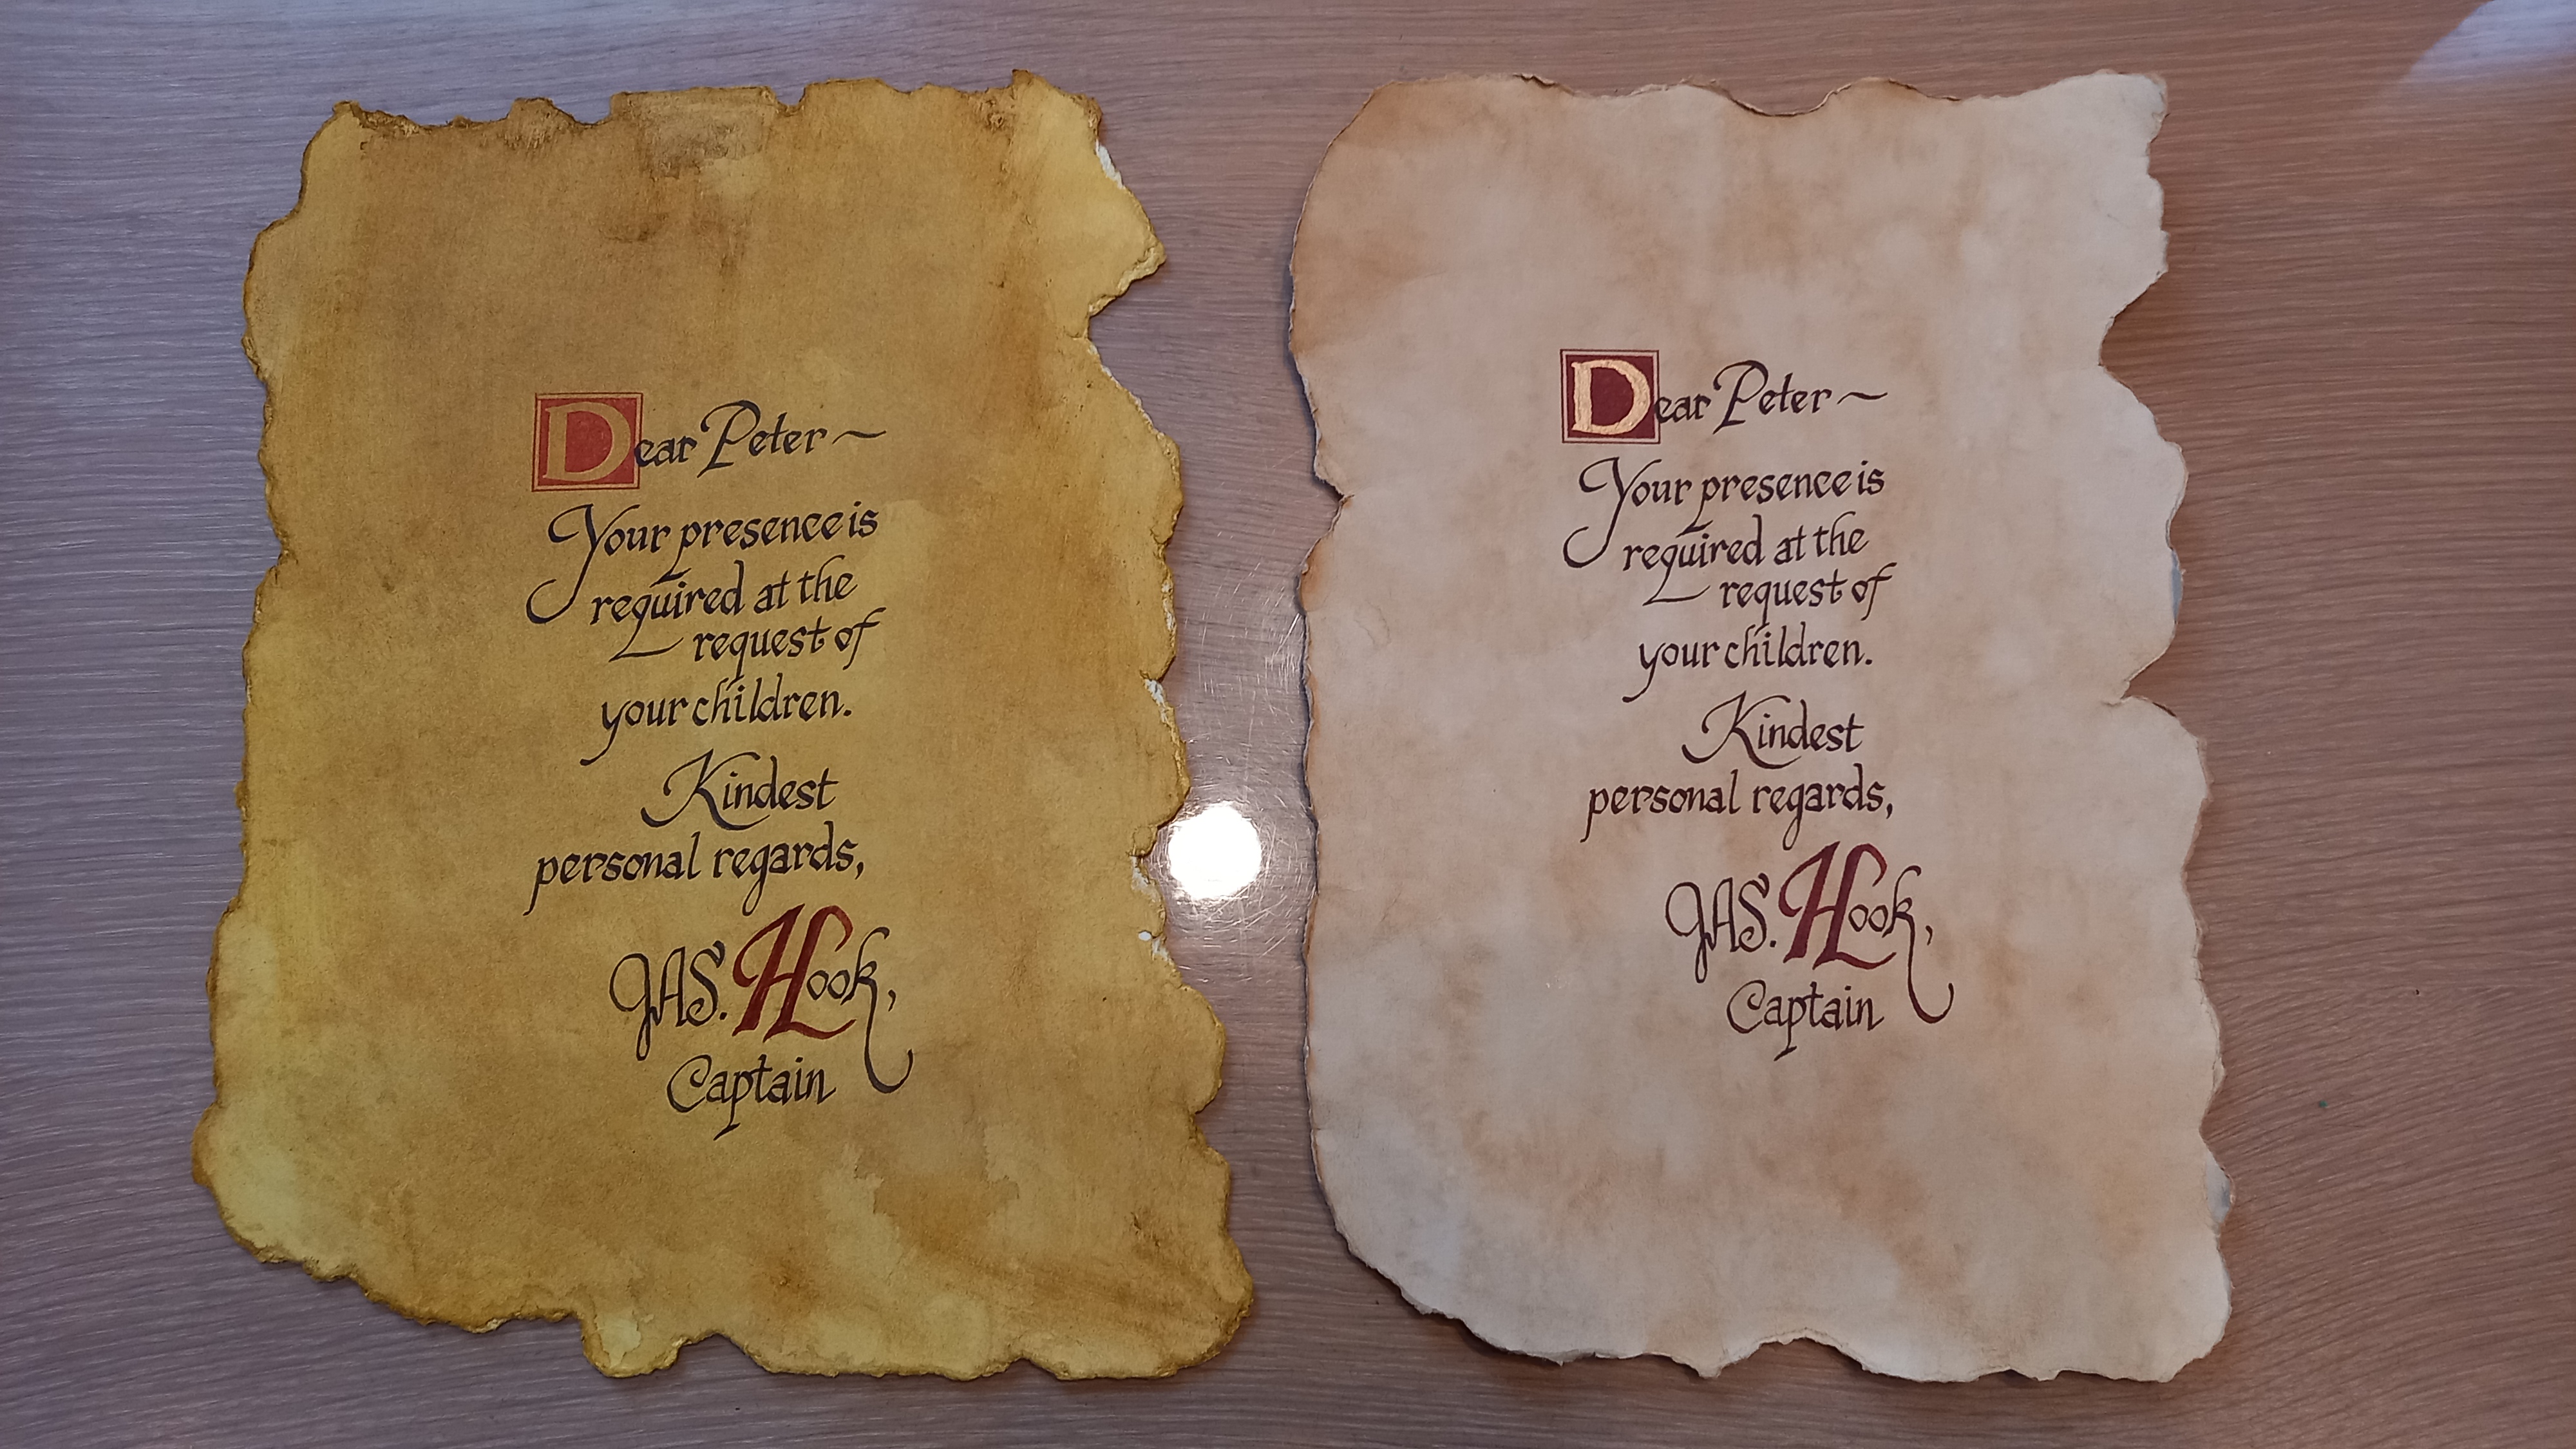 Dear Peter ~
Your presence is
required at the
request of
your children.
Kindest
personal regards,
JAS. Hook,
Captain
Dear Peter ~
Your presence is
required at the
request of
your children.
Kindest
personal regards,
JAS. Hook,
Captain